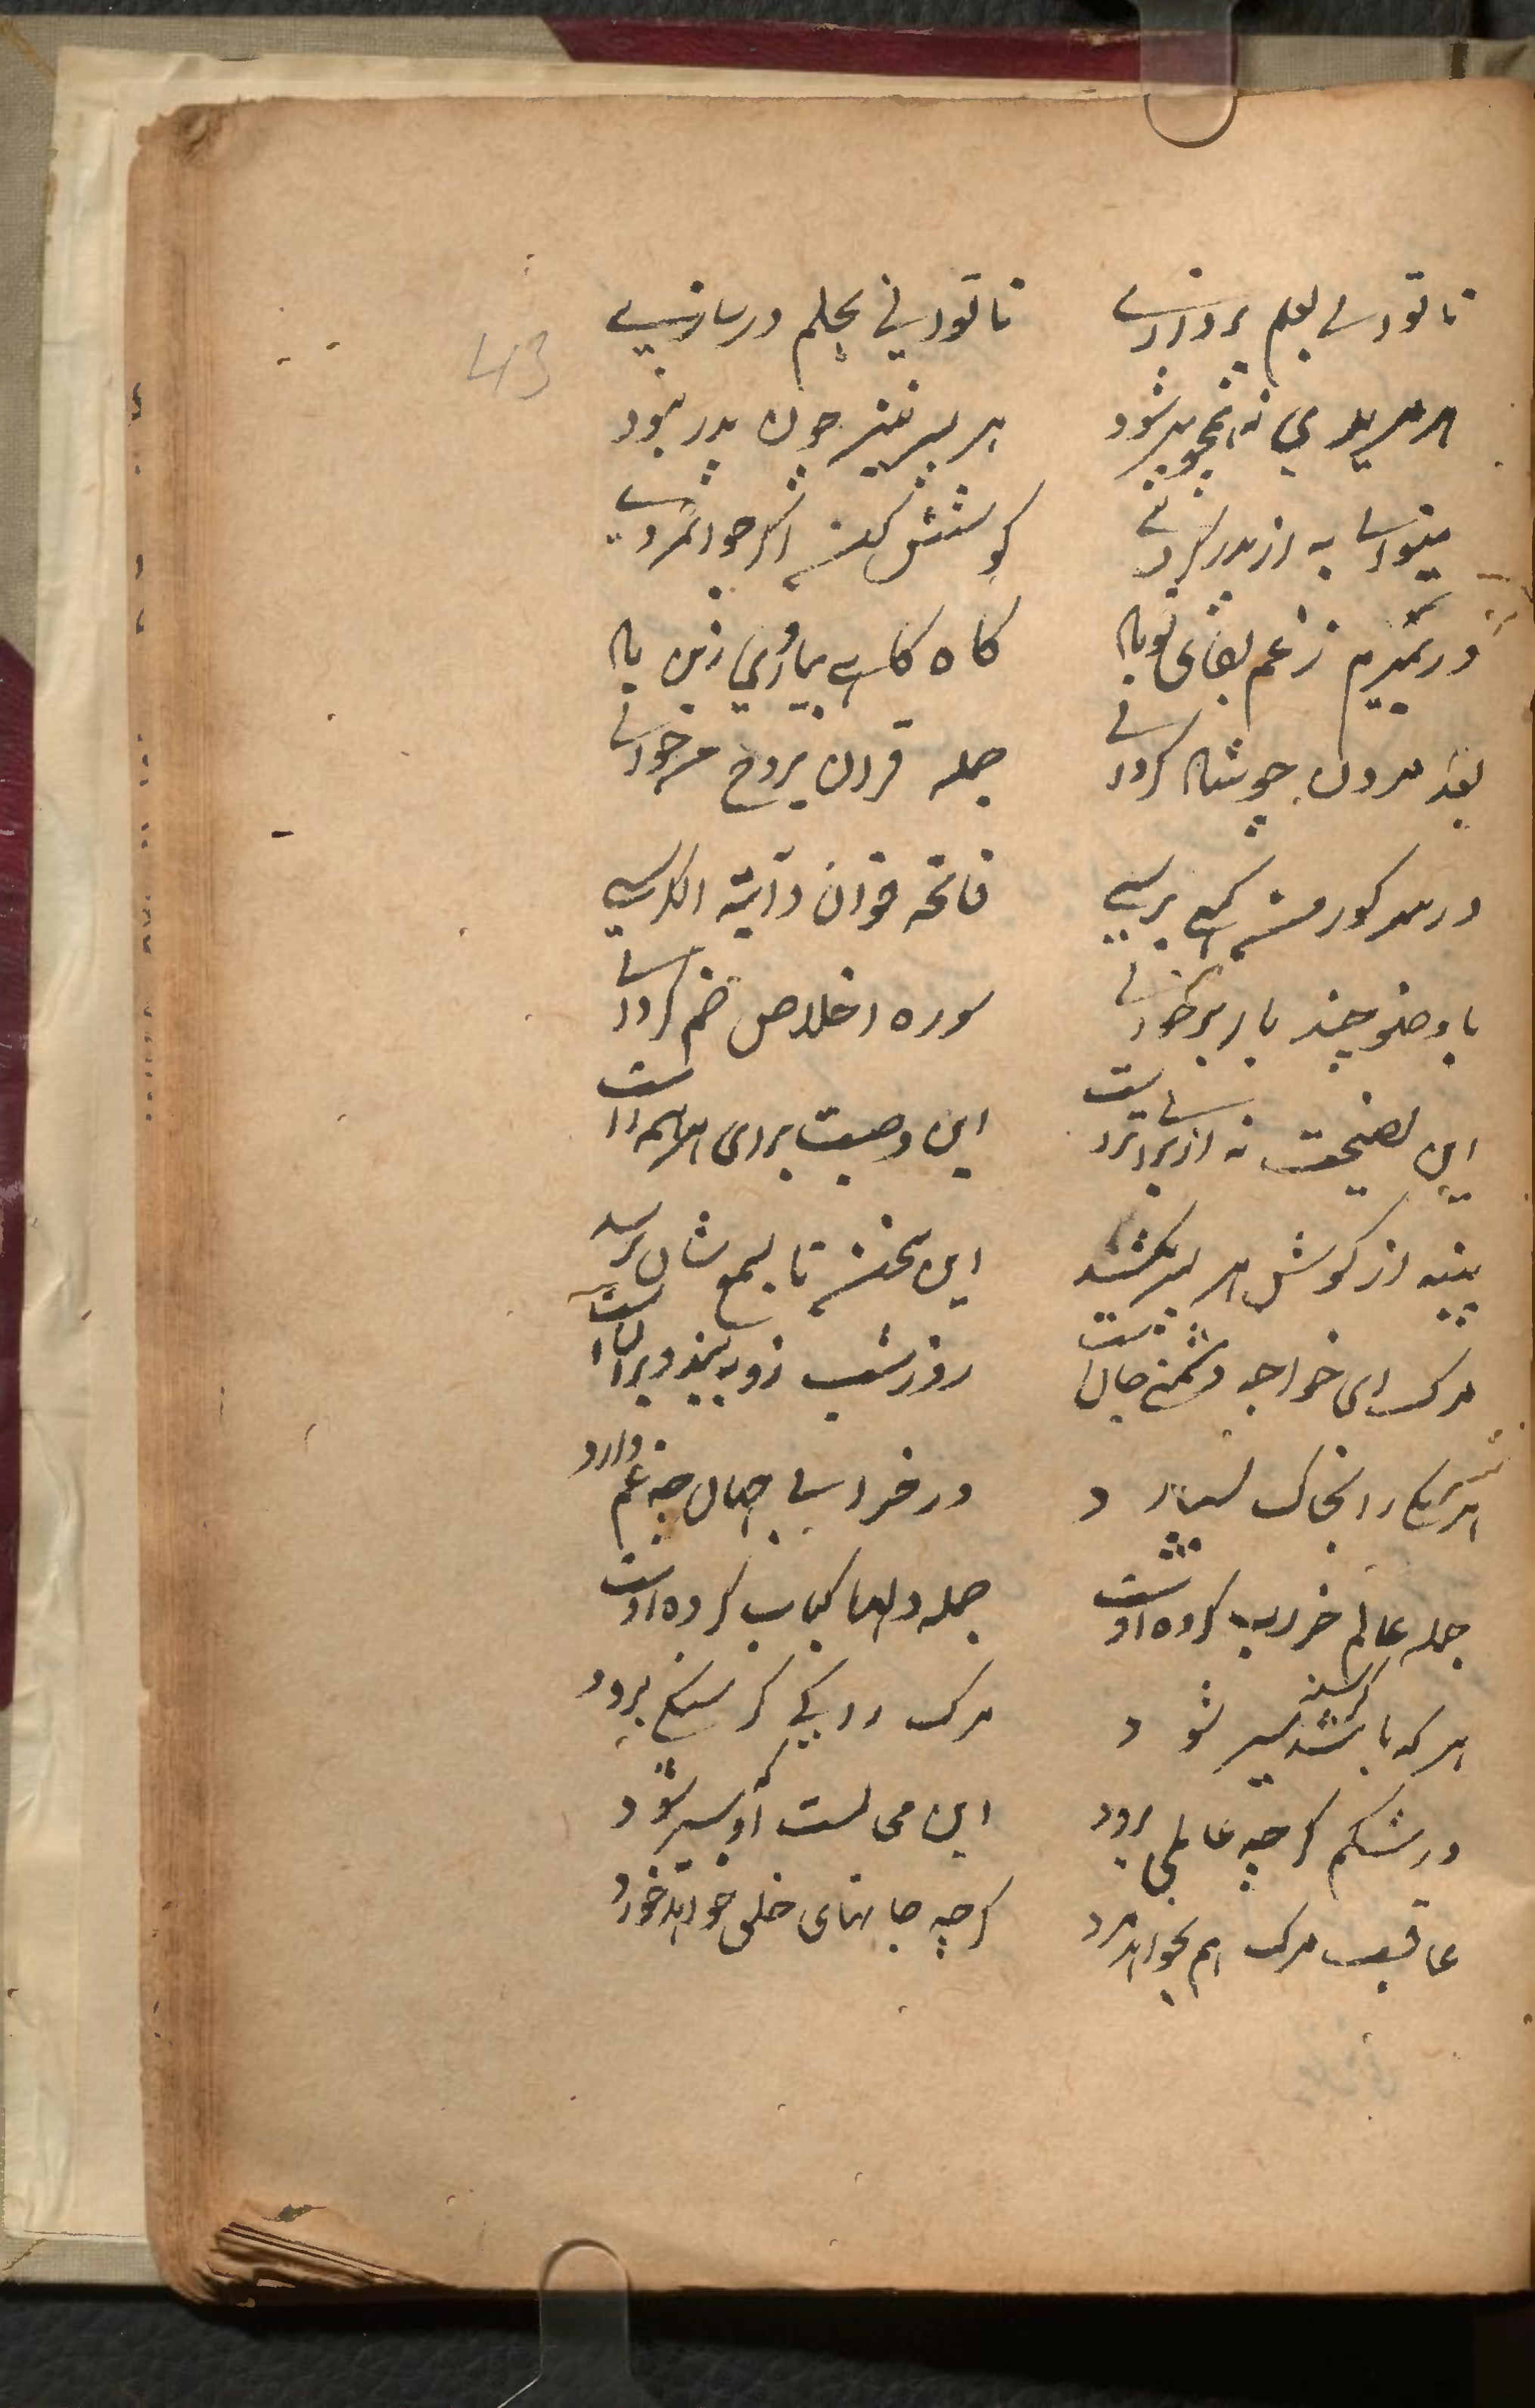 تا توانی بعلم پردازی تا توانی بحلم درسازی
هر مریدی نه همچو پیر شود هر پسر نیز چون پدر نبود
میتوانی به از پدر گردی کوشش کن اگر جوانمردی
ور بمیرم ز غم بقای تو باد گاه گاهی بیاوری زین یاد
بعد مردن چو شاد گردانی جمله قران بروح من خوانی
در سر گور من کمی برسی فاتحه خوان و آیة الکرسی
با وضو چند بار برخوانی سوره اخلاص ضم گردانی
این نصیحت نه از برا تراست این وصیت برای هر همه را است
پنبه از گوش هر پسر بکشید این سخن تا بسمع شان برسد
مرک ای خواجه دشمن جان است روز شب زو به بین و بران است
هر یکی را بخاک بسپارد در خرابی جهان چه غم دارد
جمله عالم خراب کرده اوست جمله دلها کباب کرده اوست
هر که باشد گرسنه سیر شود مرک را کی گرسنگی برود
در شکم گرچه عالمی برود این محالست او که سیر شود
عاقبت مرک هم بخواهد مرد گرچه جانهای خلق خواهد خورد
43